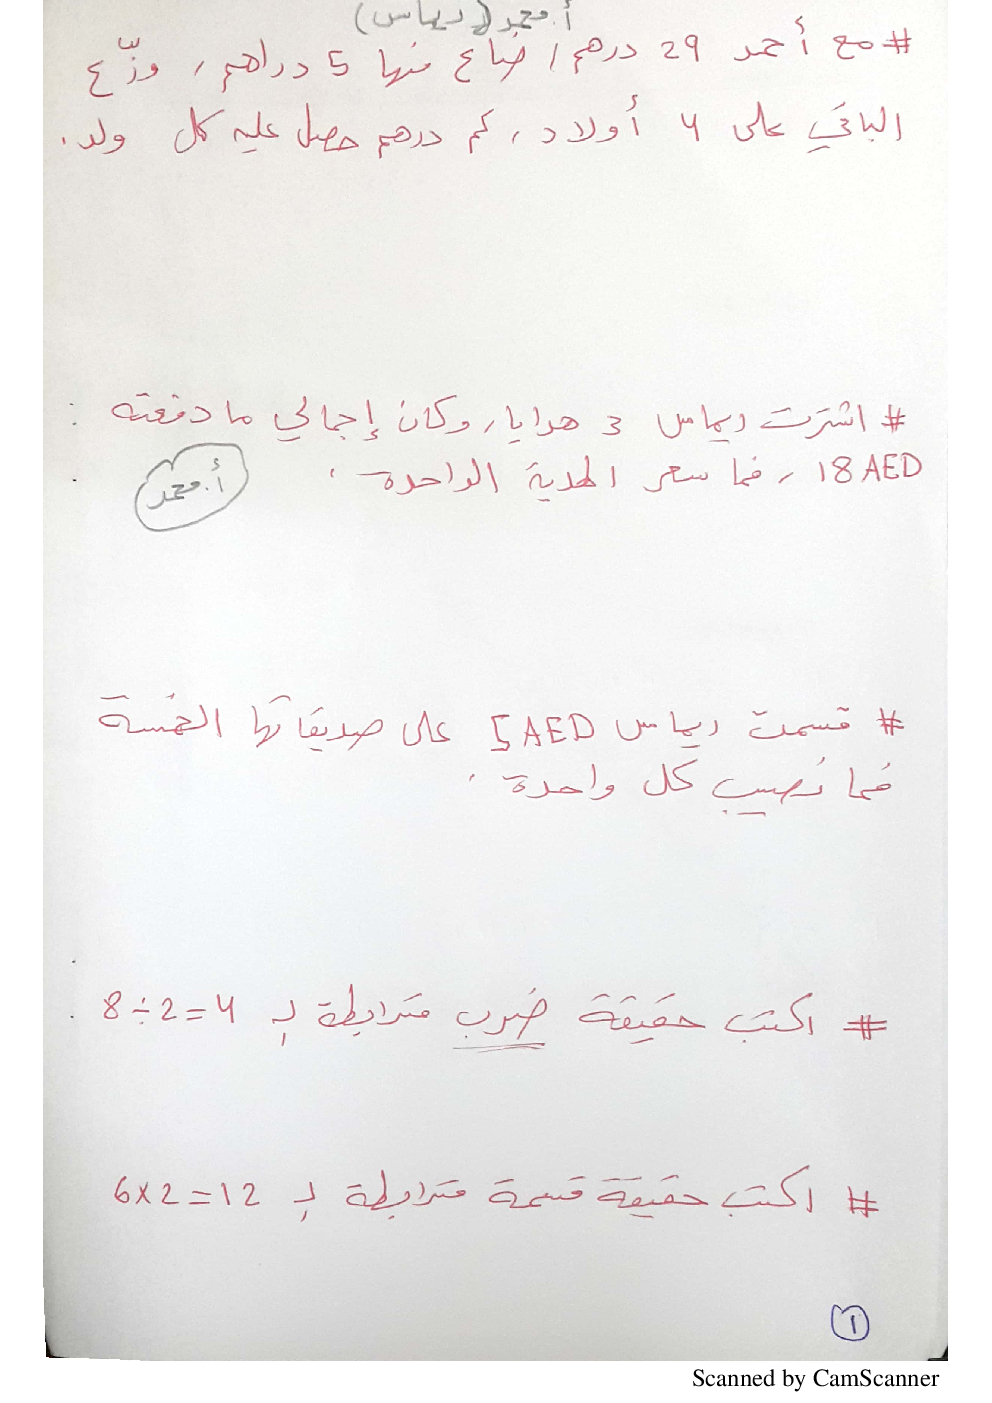 أ. محمد (ريماس)
# مع أحمد 29 درهم، ضاع منها 5 دراهم، وزّع
الباقي على 4 أولاد، كم درهم حصل عليه كل ولد.
# اشترت ريماس 3 هدايا، وكان إجمالي ما دفعته
18 AED، فما سعر الهدية الواحدة.
أ. محمد
# قسمت ريماس 5 AED على صديقاتها الخمسة
فما نصيب كل واحدة.
# اكتب حقيقة ضرب مترابطة لـ 8÷2=4
# اكتب حقيقة قسمة مترابطة لـ 6×2=12
1
Scanned by CamScanner